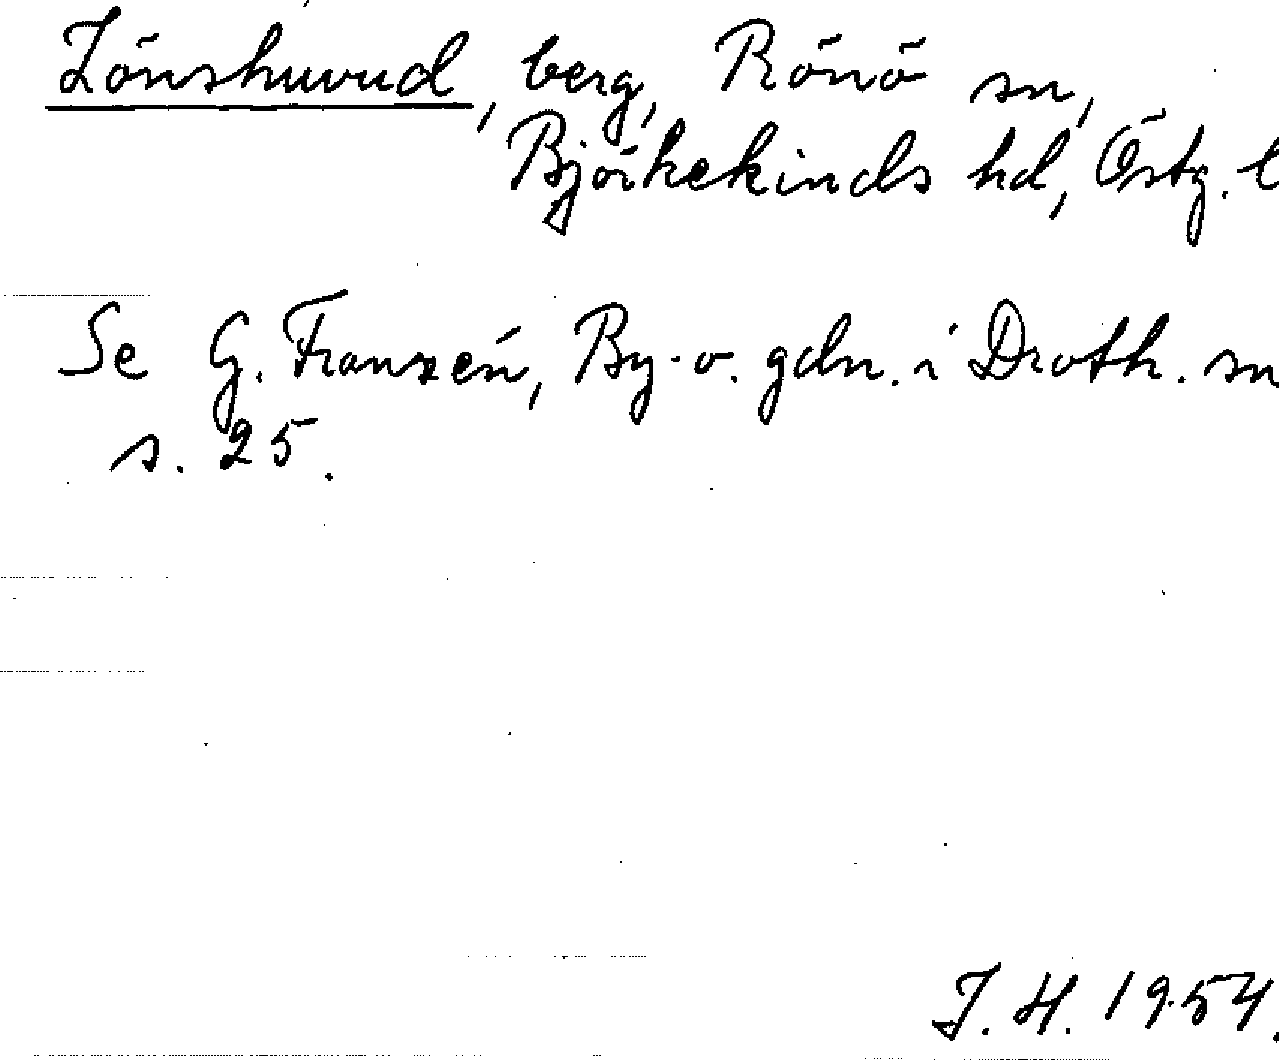 Lönshuvud, berg, Rönö sn,
Björkekinds hd, Östg. l
Se G. Franzén, By- o. gdn. i Droth. sn
s. 25.
J. H. 1954.